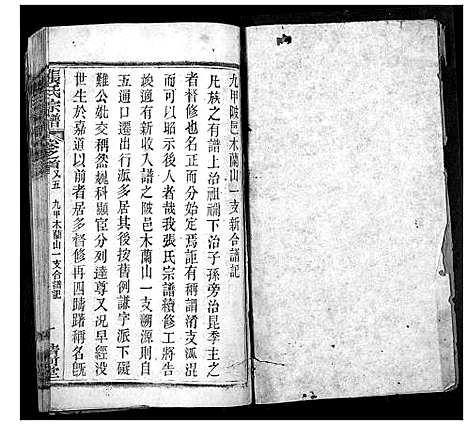 九甲陂邑木蘭山一支新合譜記
凡族之有譜上治祖禰下治子孫旁治昆季主之
者督修而合族自始定焉詎有稱謂淆支派混
而可以昭示後人者哉我張氏宗譜續修工將告
竣適有新收入譜之陂邑木蘭山一支溯源則自
五通口遷出行派多居其後按舊例謙字派下礙
難公妣交稱然巍科顯宦分列達尊又况早經沒
世生於嘉道以前者居多督修再四躊躇稱名既
張氏宗譜
卷之首又五
九甲木蘭山一支合譜記
堂